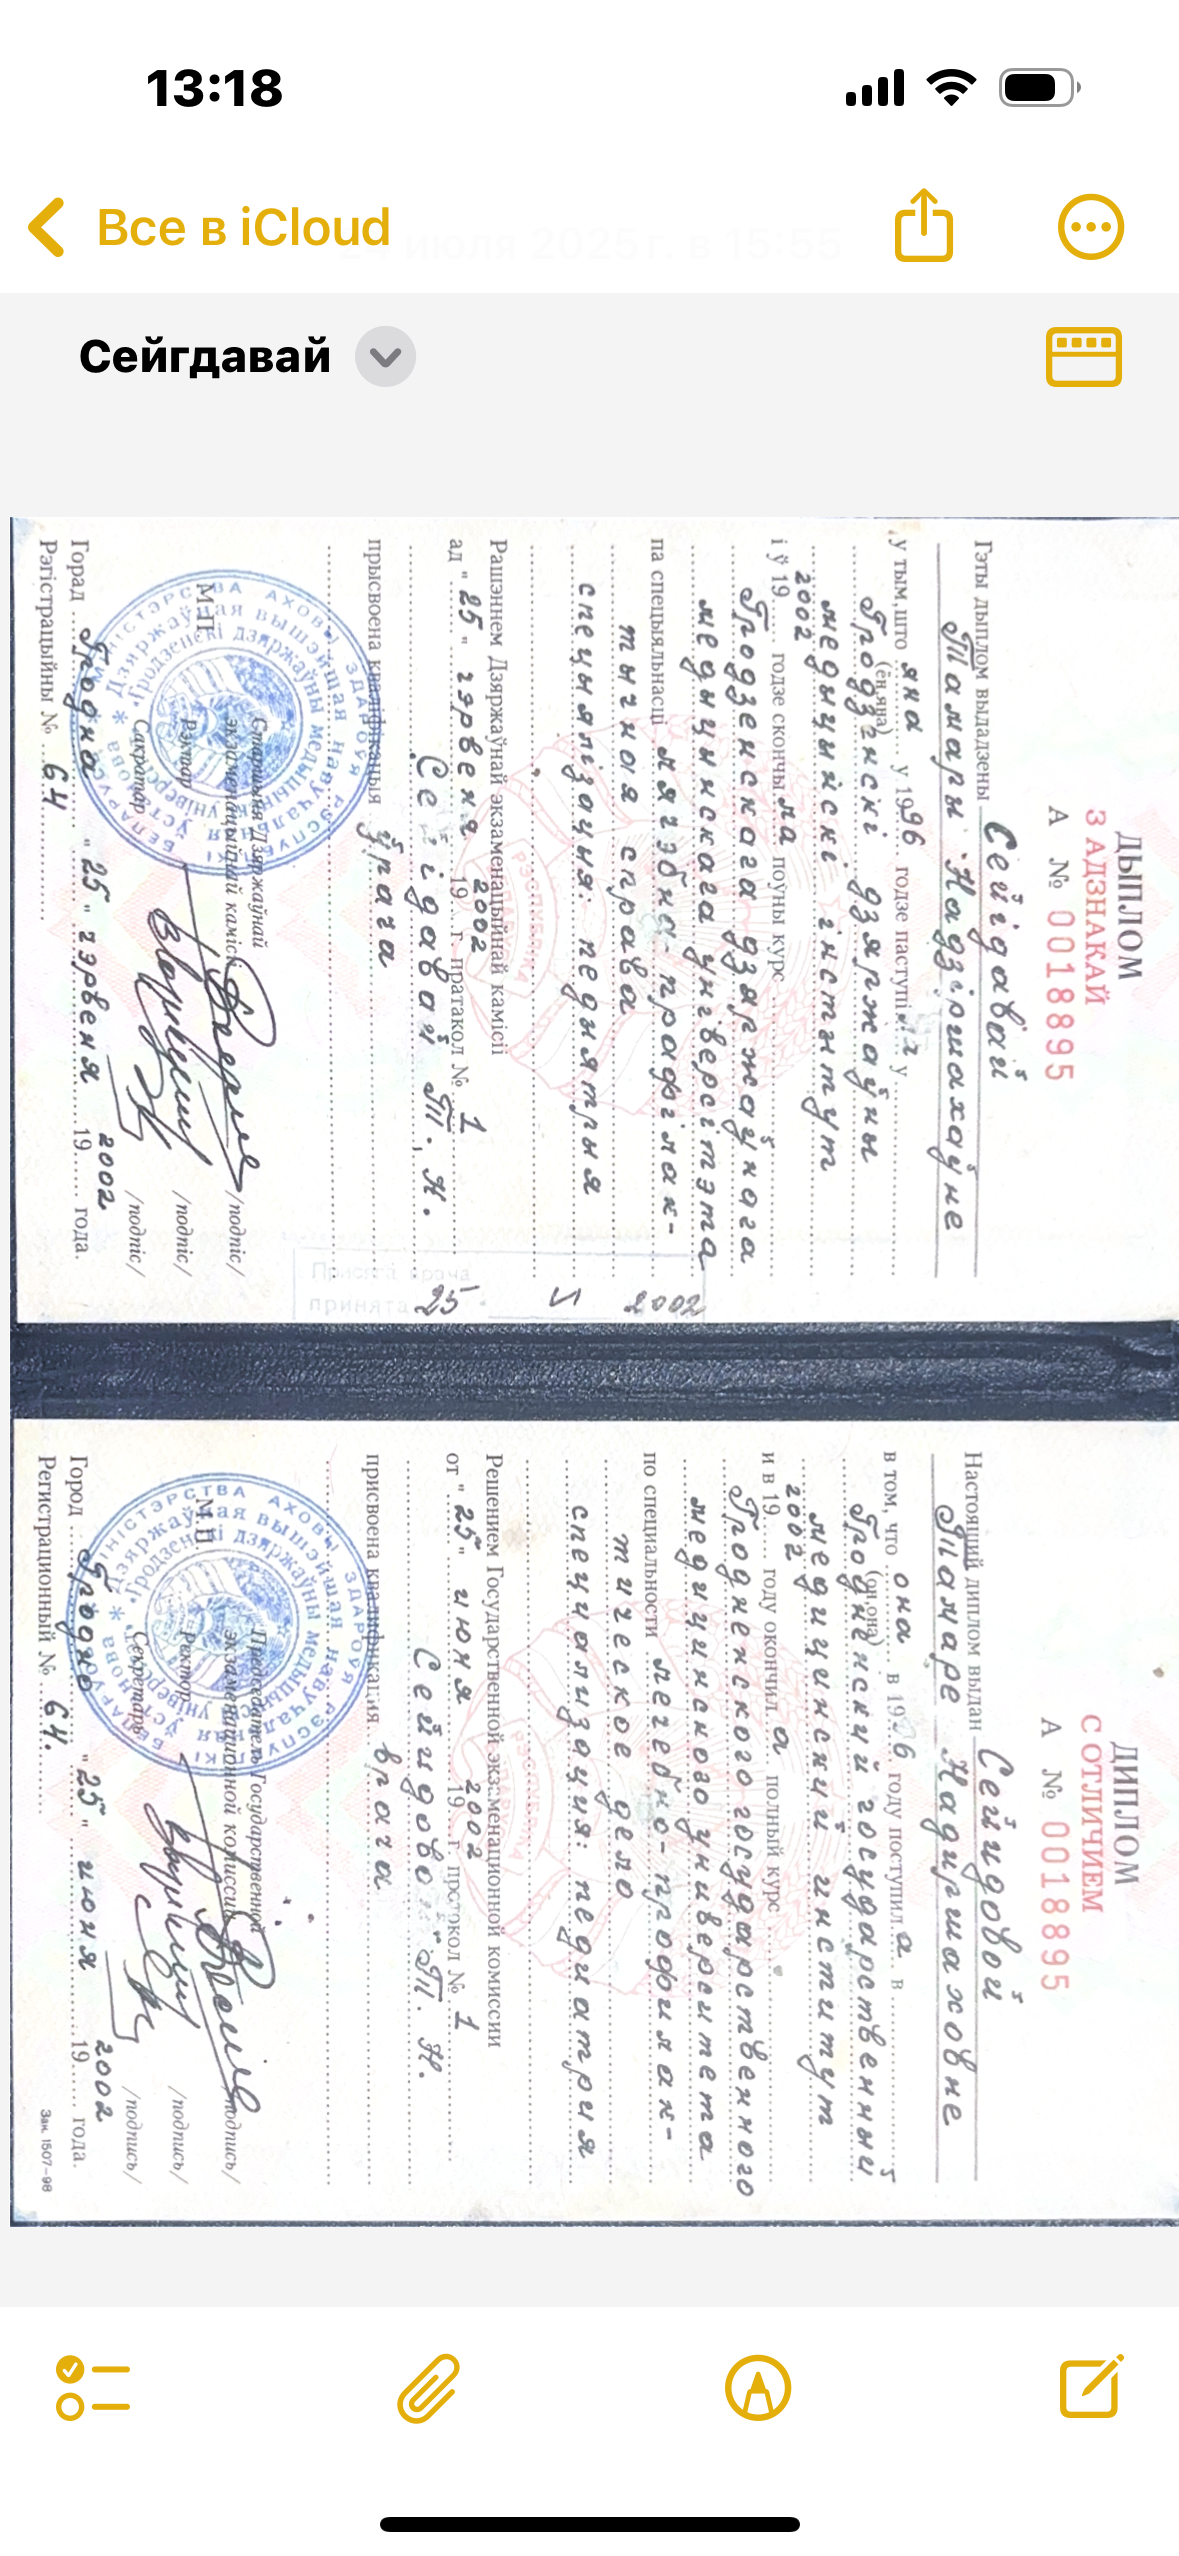 13:18
Все в iCloud
июля 2025 г. в 15:55
Сейгдавай
ДЫПЛОМ
З АДЗНАКАЙ
А № 0018895
Гэты дыплом выдадзены Сейідавай
Тамары Надзіршахаўне
у тым, што яна у 1996 годзе паступіла у
(ён, яна)
Гродзенскі дзяржаўны
медыцынскі інстытут
2002
і ў 19 годзе скончыла поўны курс
Гродзенскага дзяржаўнага
медыцынскага універсітэта
па спецыяльнасці лячэбна-прафілак-
тычная справа
спецыялізацыя: педыятрыя
Рашэннем Дзяржаўнай экзаменацыйнай камісіі
ад "25" чэрвеня 2002 19 г. пратакол № 1
Сейідавай Т. Н.
прысвоена кваліфікацыя ўрача
Старшыня Дзяржаўнай
экзаменацыйнай камісіі /подпіс/
Рэктар /подпіс/
Сакратар /подпіс/
М.П.
Горад Гродна "25" чэрвеня 2002 19 года.
Рэгістрацыйны № 64
Присяга врача
принята 25 2002
ДИПЛОМ
С ОТЛИЧИЕМ
А № 0018895
Настоящий диплом выдан Сейидовой
Тамаре Надиршаховне
в том, что она в 1996 году поступила в
(он, она)
Гродненский государственный
медицинский институт
2002
и в 19 году окончила полный курс
Гродненского государственного
медицинского университета
по специальности лечебно-профилак-
тическое дело
специализация: педиатрия
Решением Государственной экзаменационной комиссии
от "25" июня 2002 19 г. протокол № 1
Сейидовой Т. Н.
присвоена квалификация врача
Председатель Государственной
экзаменационной комиссии /подпись/
Ректор /подпись/
Секретарь /подпись/
М.П.
Город Гродно "25" июня 2002 19 года.
Регистрационный № 64.
Зак. 1507-98